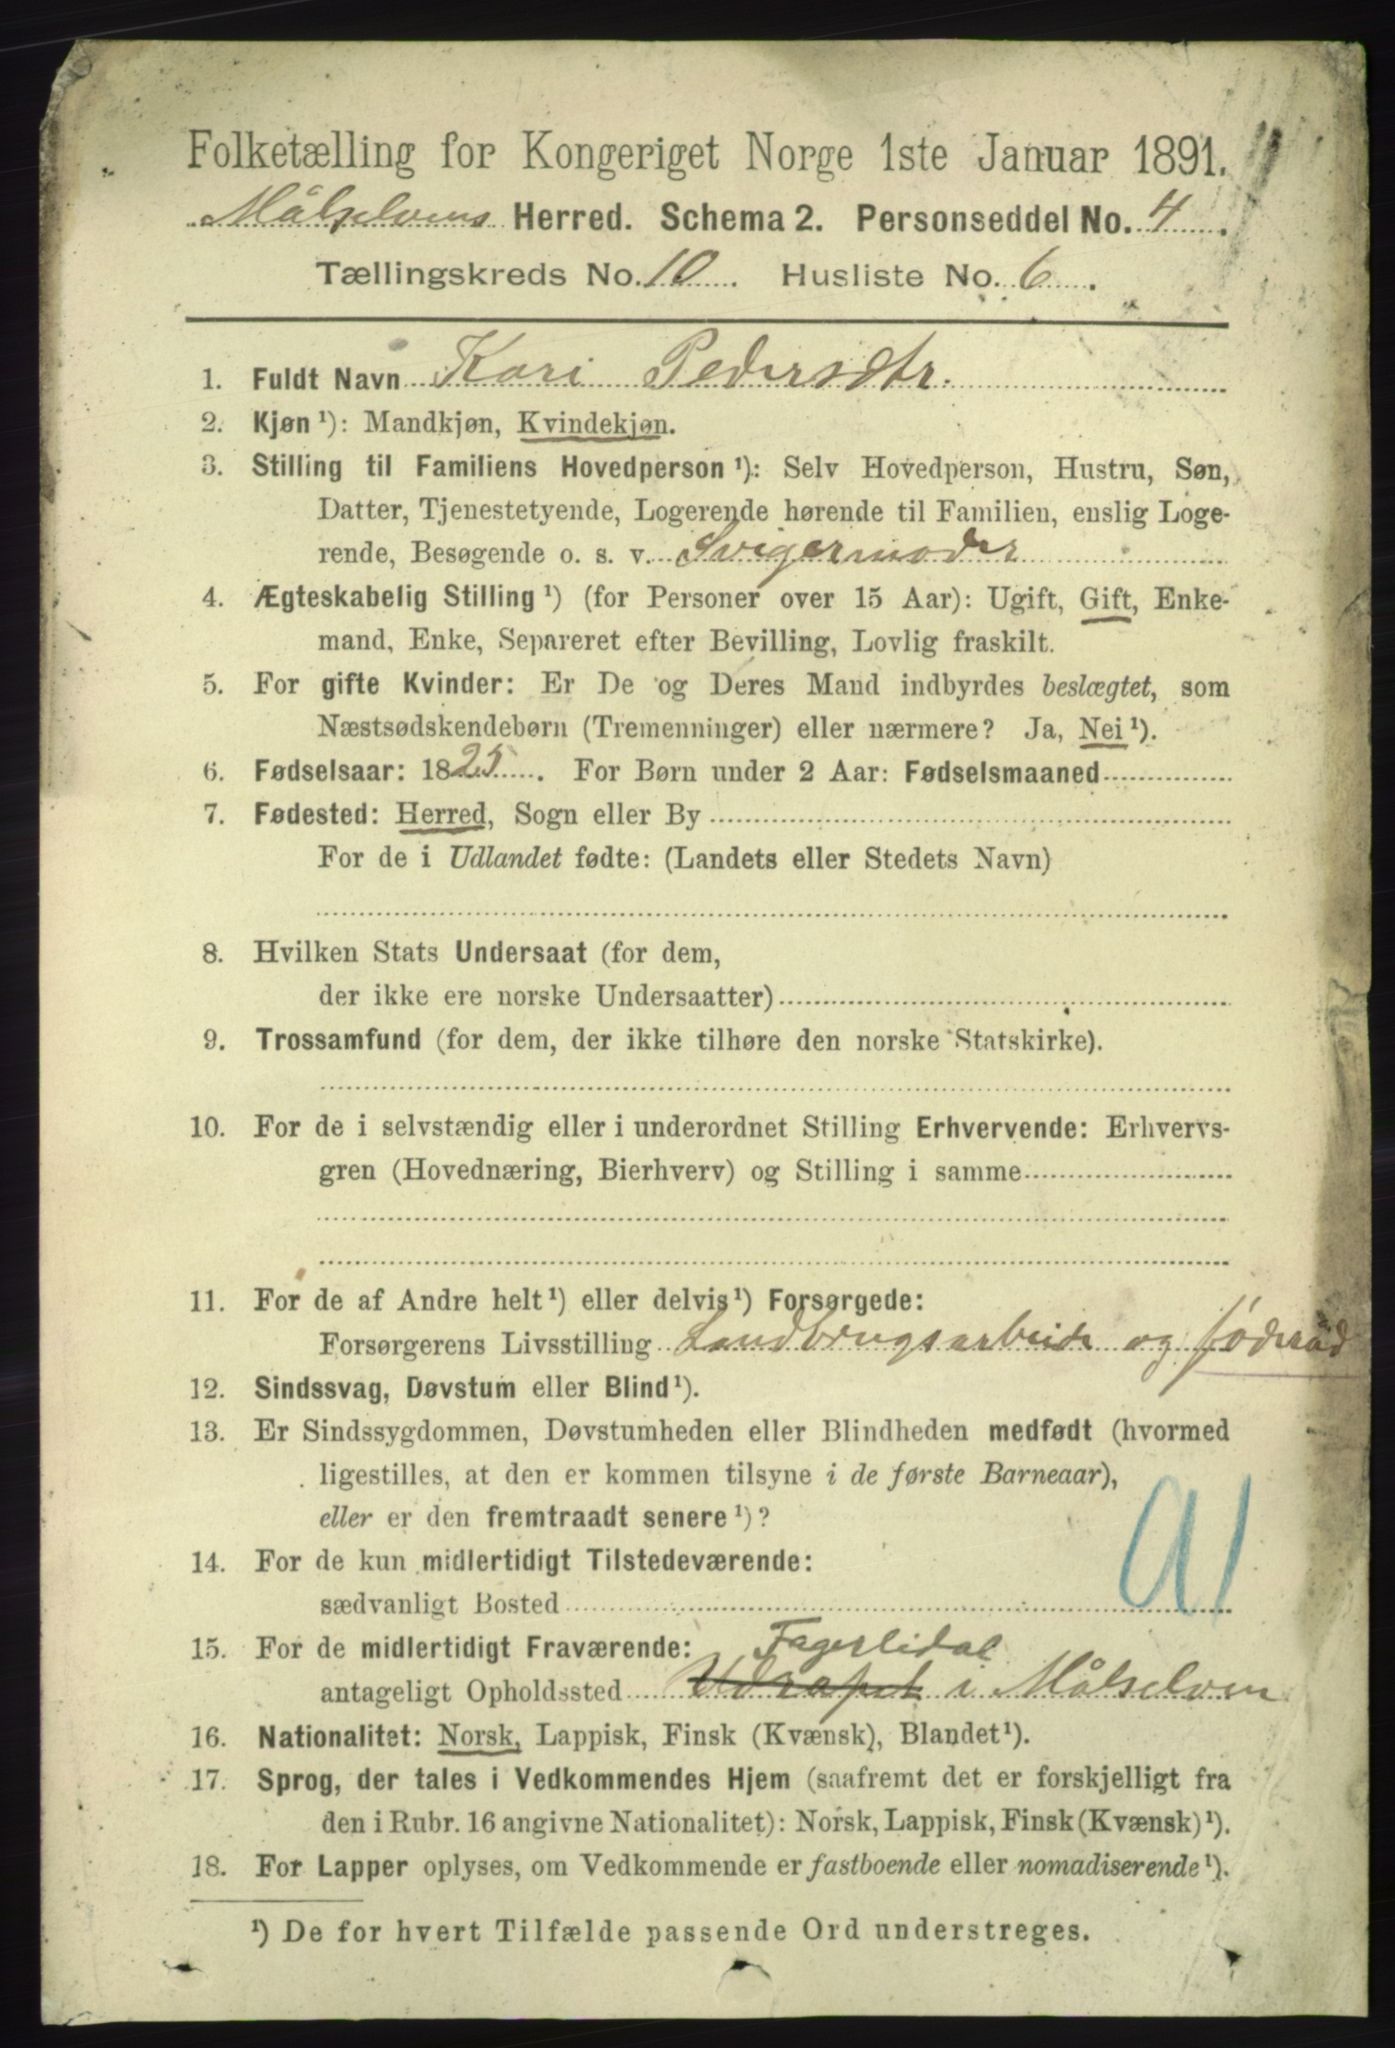 Folketælling for Kongeriget Norge 1ste Januar 1891.
Målselvens Herred. Schema 2. Personseddel No. 4.
Tællingskreds No. 10. Husliste No. 6.
1. Fuldt Navn Kari Pedersdtr.
2. Kjøn ¹): Mandkjøn, Kvindekjøn.
3. Stilling til Familiens Hovedperson ¹): Selv Hovedperson, Hustru, Søn,
Datter, Tjenestetyende, Logerende hørende til Familien, enslig Loge-
rende, Besøgende o. s. v. Svigermoder
4. Ægteskabelig Stilling ¹) (for Personer over 15 Aar): Ugift, Gift, Enke-
mand, Enke, Separeret efter Bevilling, Lovlig fraskilt.
5. For gifte Kvinder: Er De og Deres Mand indbyrdes beslægtet, som
Næstsødskendebørn (Tremenninger) eller nærmere? Ja, Nei ¹).
6. Fødselsaar: 1825. For Børn under 2 Aar: Fødselsmaaned
7. Fødested: Herred, Sogn eller By
For de i Udlandet fødte: (Landets eller Stedets Navn)
8. Hvilken Stats Undersaat (for dem,
der ikke ere norske Undersaatter)
9. Trossamfund (for dem, der ikke tilhøre den norske Statskirke).
10. For de i selvstændig eller i underordnet Stilling Erhvervende: Erhvervs-
gren (Hovednæring, Bierhverv) og Stilling i samme
11. For de af Andre helt ¹) eller delvis ¹) Forsørgede:
Forsørgerens Livsstilling Landbrugsarbeide ogføderåd
12. Sindssvag, Døvstum eller Blind ¹).
13. Er Sindssygdommen, Døvstumheden eller Blindheden medfødt (hvormed
ligestilles, at den er kommen tilsyne i de første Barneaar),
eller er den fremtraadt senere ¹)?
91
14. For de kun midlertidigt Tilstedeværende:
sædvanligt Bosted
15. For de midlertidigt Fraværende: Fagerlidal
antageligt Opholdssted i Målselven
16. Nationalitet: Norsk, Lappisk, Finsk (Kvænsk), Blandet ¹).
17. Sprog, der tales i Vedkommendes Hjem (saafremt det er forskjelligt fra
den i Rubr. 16 angivne Nationalitet): Norsk, Lappisk, Finsk (Kvænsk) ¹).
18. For Lapper oplyses, om Vedkommende er fastboende eller nomadiserende ¹).
¹) De for hvert Tilfælde passende Ord understreges.